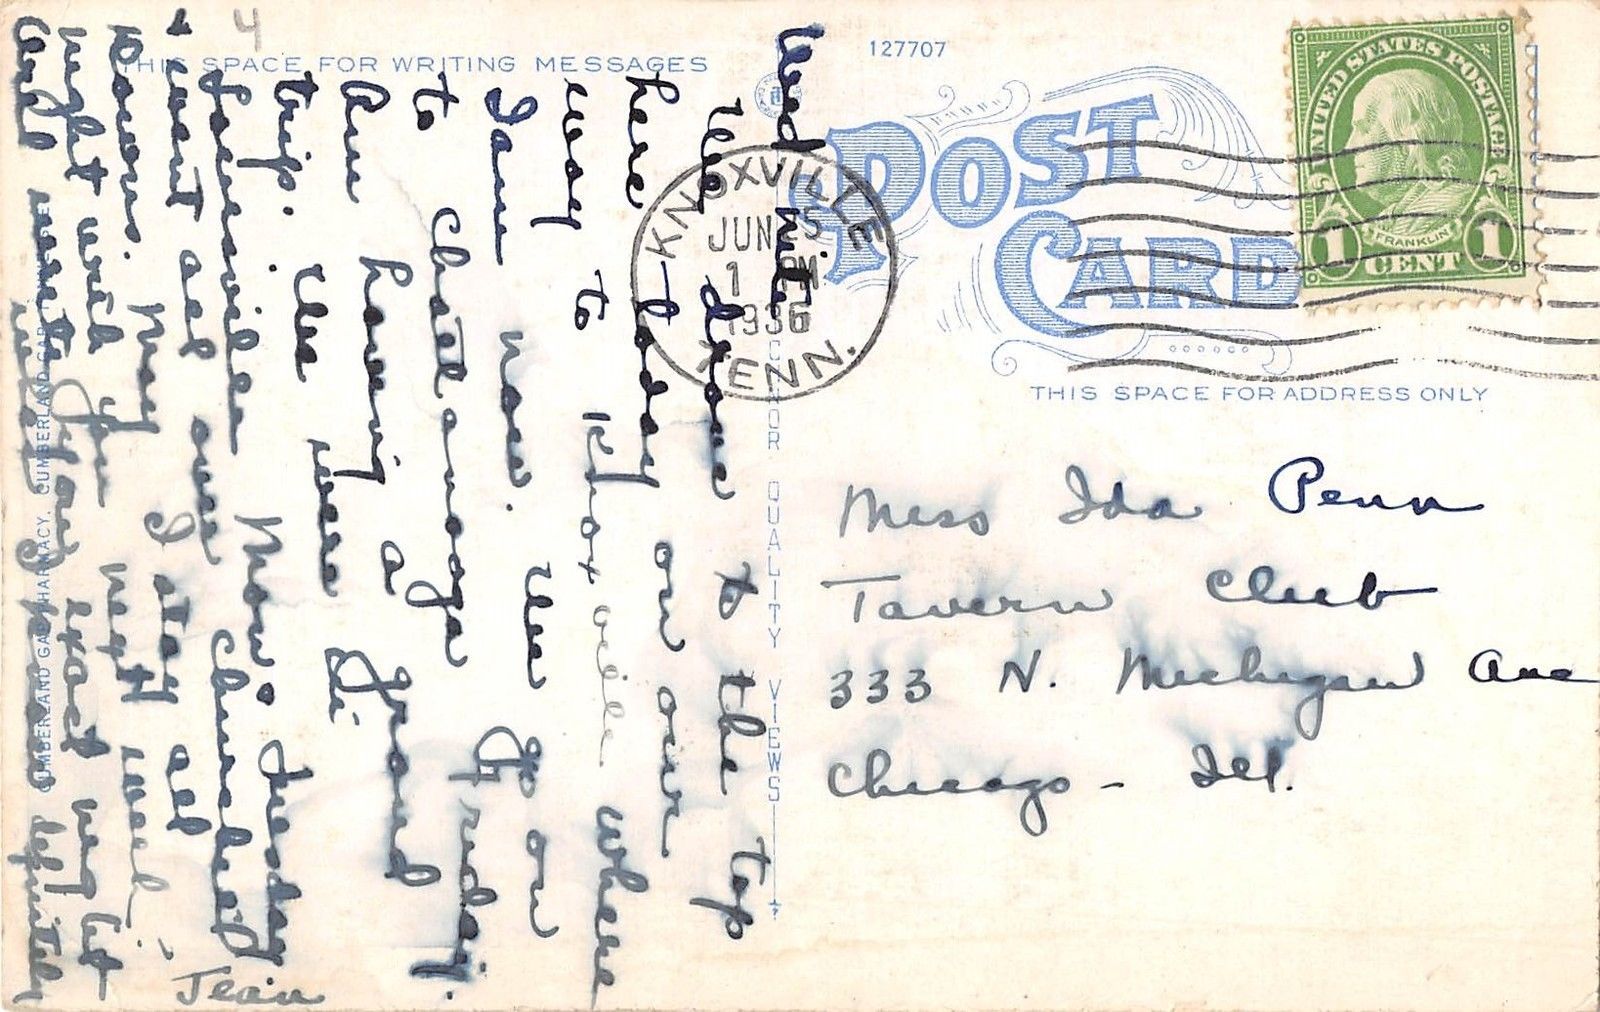 THIS SPACE FOR WRITING MESSAGES
127707
POST CARD
UNITED STATES POSTAGE
FRANKLIN
1 CENT 1
KNOXVILLE
JUN 25
1 PM
1936
TENN.
THIS SPACE FOR ADDRESS ONLY
Wed nite
We drove to the top
here today on our
way to Knoxville where
I am now. We go on
to Chatanooga Friday.
Am having a grand
trip. We were in
Louisville Mon. Tuesday
& went all over Churchill
Downs. May I stay all
night with you next week,
and exact
definitely
Jean
4
Miss Ida Penn
Tavern Club
333 N. Michigan Ave
Chicago - Ill.
QUALITY VIEWS